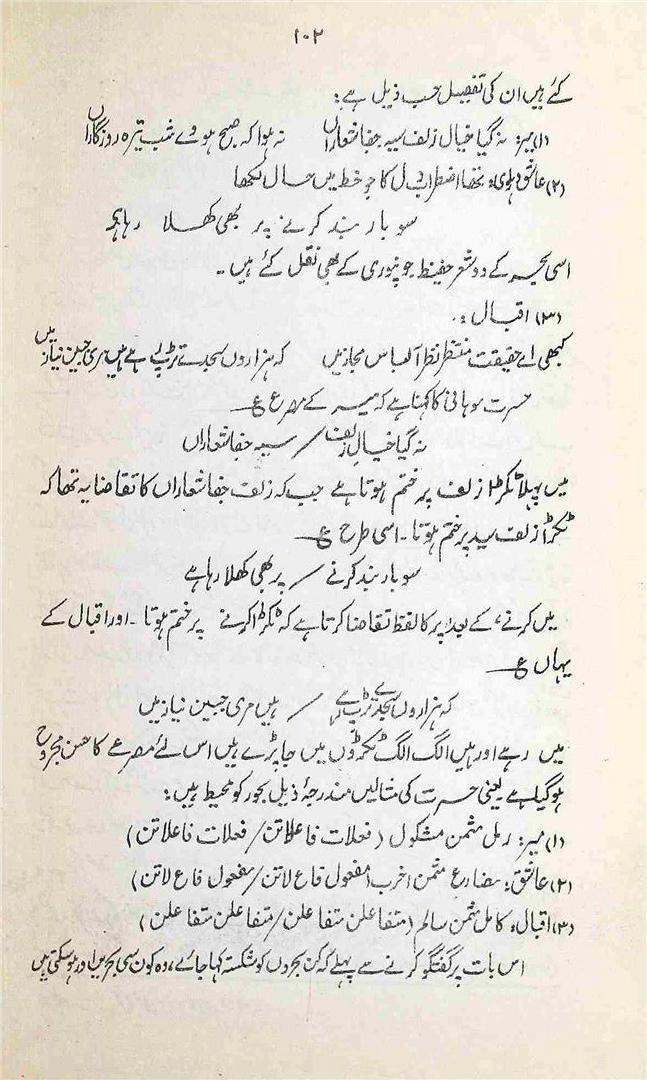 ۱۰۲
کئے ہیں ان کی تفصیل حسب ذیل ہے:
(۱) میر: نہ گیا خیال زلف سیہ جفا شعاراں نہ ہوا کہ صبح ہووے شب تیرہ روزگاراں
(۲) عاشق دہلوی: تھا اضطراب دل کا جو خط میں حال لکھا
سو بار بند کرنے پر بھی کھلا رہا ہے
اسی بحر کے دو شعر حفیظ جونپوری کے بھی نقل کئے ہیں۔
(۳) اقبال:۔
کبھی اے حقیقت منتظر نظر آ لباس مجاز میں کہ ہزاروں سجدے تڑپ رہے ہیں مری جبین نیاز میں
حسرت موہانی کا کہنا ہے کہ میر کے مصرع ع
نہ گیا خیال زلف / سیہ جفا شعاراں
میں پہلا ٹکڑا زلف پر ختم ہوتا ہے جب کہ زلف جفا شعاراں کا تقاضا یہ تھا کہ
ٹکڑا زلف سیہ پر ختم ہوتا۔ اسی طرح ع
سو بار بند کرنے / پر بھی کھلا رہا ہے
میں کرنے، کے بعد پر کا لفظ تقاضا کرتا ہے کہ ٹکڑا کرنے پر ختم ہوتا۔ اور اقبال کے
یہاں ع
کہ ہزاروں سجدے تڑپ رہے / ہیں مری جبین نیاز میں
میں رہے اور ہیں الگ الگ ٹکڑوں میں جا پڑے ہیں اس لئے مصرعے کا حسن مجروح
ہو گیا ہے یعنی حسرت کی مثالیں مندرجۂ ذیل بحور کو محیط ہیں:
(۱) میر: رمل مثمن مشکول (فعلات فاعلاتن / فعلات فاعلاتن)
(۲) عاشق: مضارع مثمن اخرب (مفعول فاع لاتن / مفعول فاع لاتن)
(۳) اقبال: کامل مثمن سالم (متفاعلن متفاعلن / متفاعلن متفاعلن)
اس بات پر گفتگو کرنے سے پہلے کہ کن بحروں کو شکستہ کہا جائے، وہ کون سی بحریں اور ہو سکتی ہیں